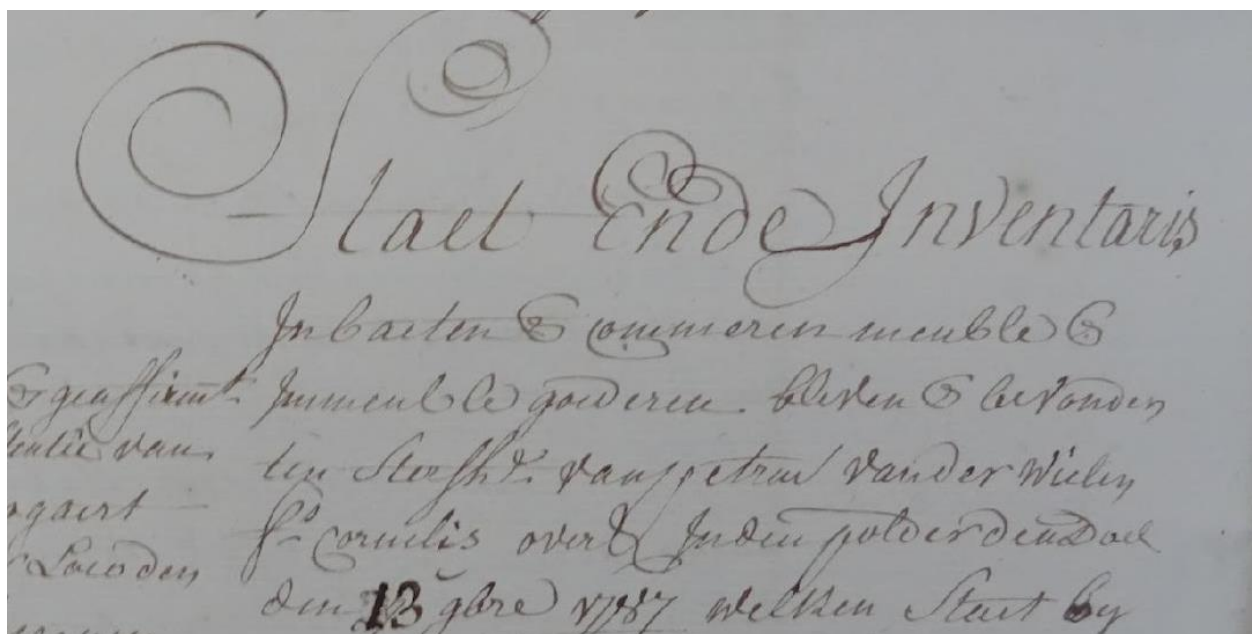 Staet Ende Inventaris
In baeten & commeren meuble &
Immeuble goederen bleven & bevonden
ten sterfh. van petrus vander wielen
fs. Cornelis overl. Inden polder den Doel
den 13 gbre 1787 welken Staet by
& geaffirmt.
van
ogaert
Landen